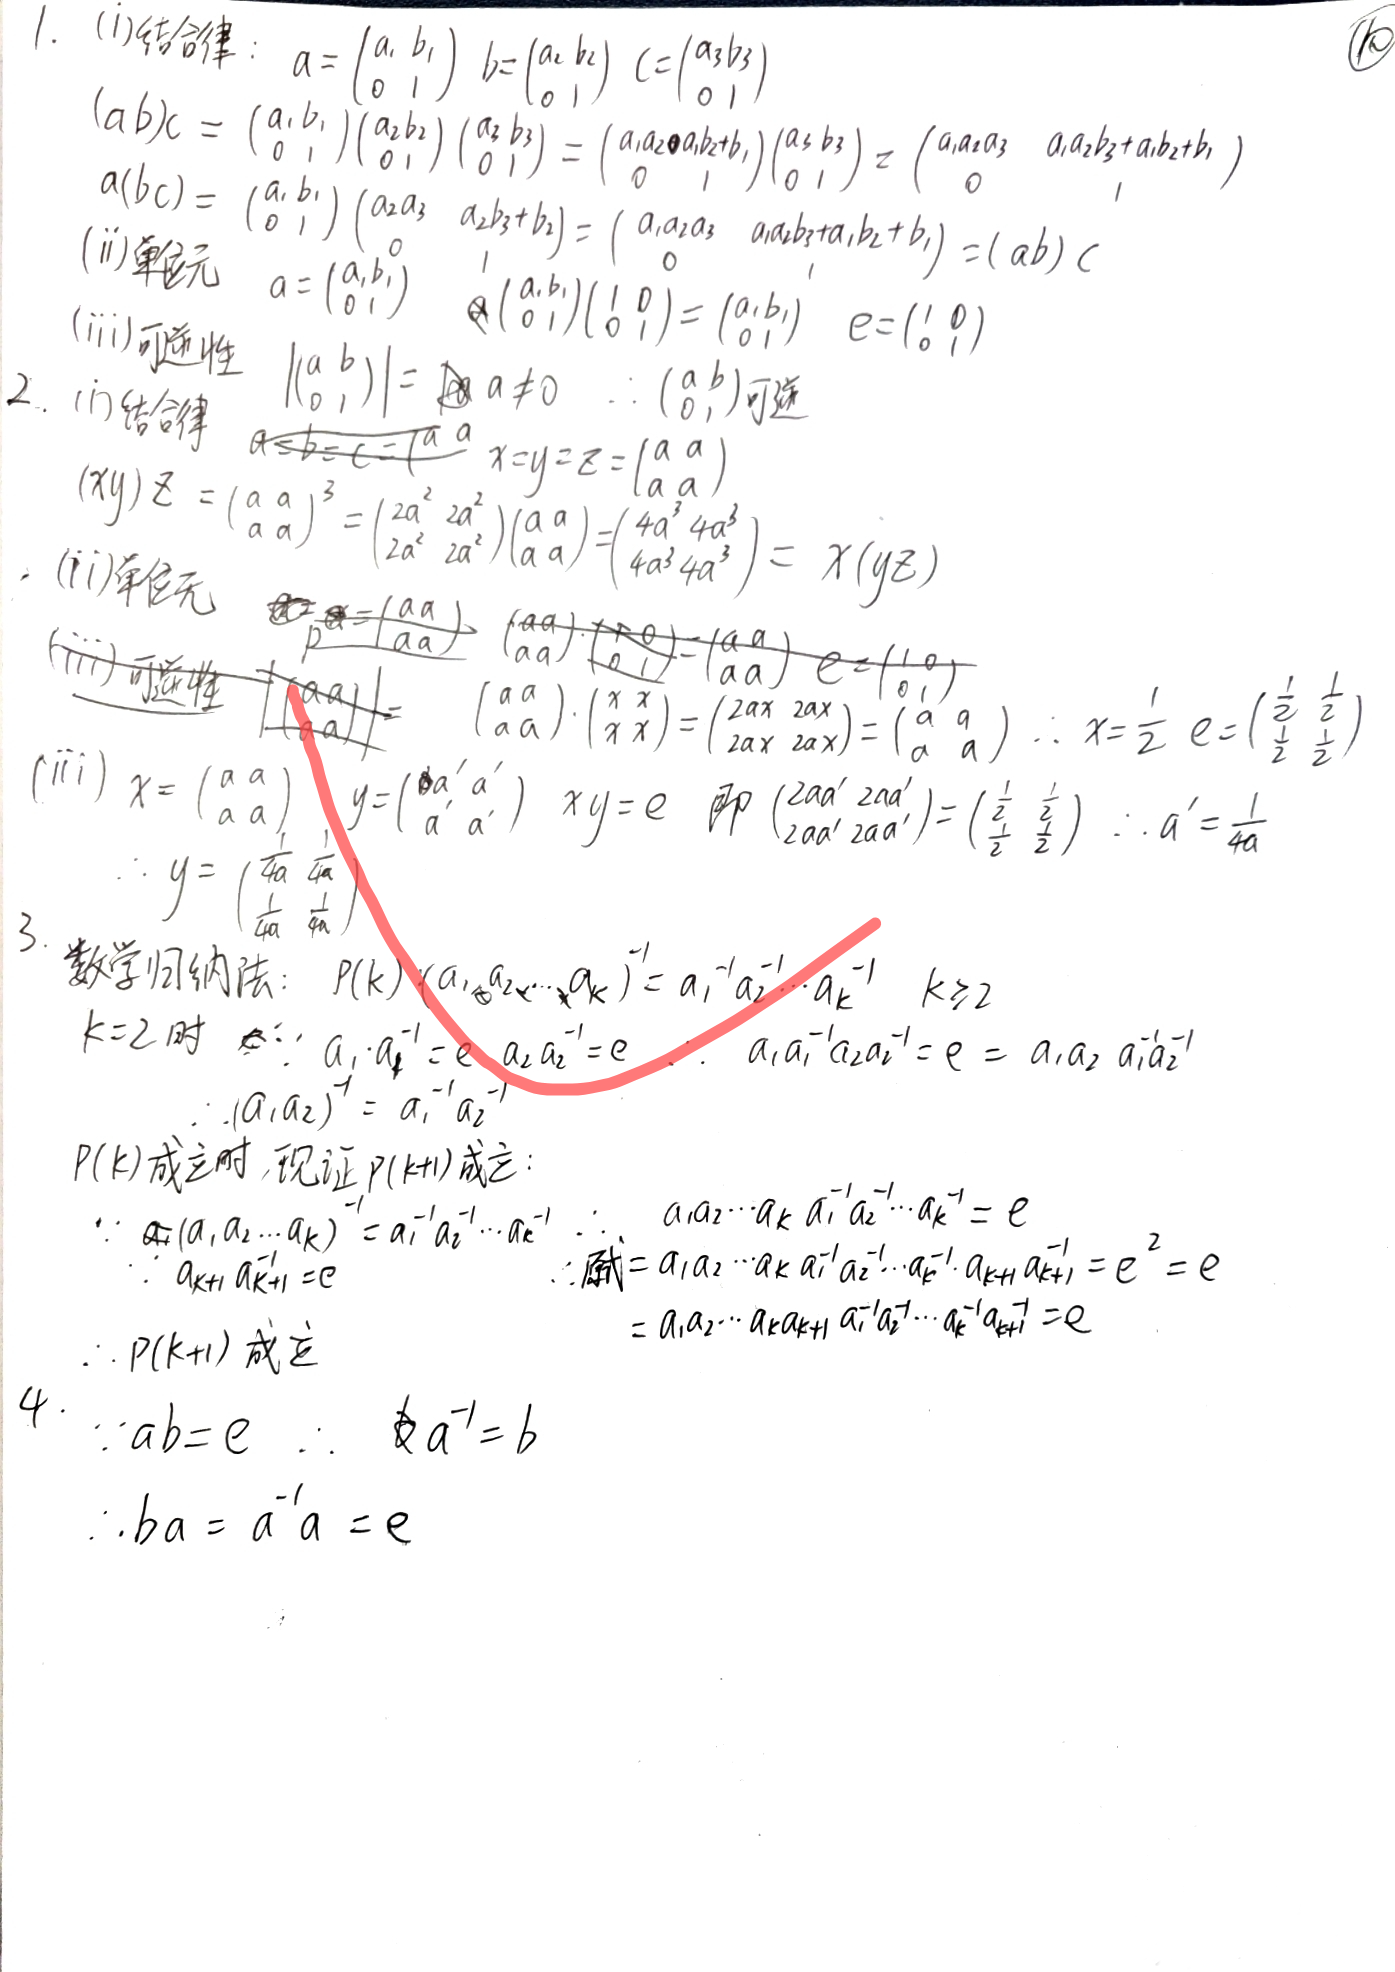 ⑩
1. (i)结合律: a=(a₁ b₁ 0 1) b=(a₂ b₂ 0 1) c=(a₃ b₃ 0 1)
(ab)c = (a₁ b₁ 0 1)(a₂ b₂ 0 1)(a₃ b₃ 0 1) = (a₁a₂ a₁b₂+b₁ 0 1)(a₃ b₃ 0 1) = (a₁a₂a₃ a₁a₂b₃+a₁b₂+b₁ 0 1)
a(bc) = (a₁ b₁ 0 1)(a₂a₃ a₂b₃+b₂ 0 1) = (a₁a₂a₃ a₁a₂b₃+a₁b₂+b₁ 0 1) = (ab)c
(ii)单位元 a=(a₁ b₁ 0 1) (a₁ b₁ 0 1)(1 0 0 1) = (a₁ b₁ 0 1) e=(1 0 0 1)
(iii)可逆性 |(a b 0 1)| = a≠0 ∴(a b 0 1)可逆
2. (i)结合律 a=b=c=(a a x=y=z=(a a a a)
(xy)z = (a a a a)³ = (2a² 2a² 2a² 2a²)(a a a a) = (4a³ 4a³ 4a³ 4a³) = x(yz)
(ii)单位元 =(a a a a) (a a a a)·(1 0 0 1)=(a a a a) e=(1 0 0 1)
(iii)可逆性 |(a a a a)|= (a a a a)·(x x x x)=(2ax 2ax 2ax 2ax)=(a a a a) ∴x=1/2 e=(1/2 1/2 1/2 1/2)
(iii) x=(a a a a) y=(a′ a′ a′ a′) xy=e 即(2aa′ 2aa′ 2aa′ 2aa′)=(1/2 1/2 1/2 1/2) ∴a′=1/4a
∴y=(1/4a 1/4a 1/4a 1/4a)
3. 数学归纳法: P(k):(a₁a₂…aₖ)⁻¹=a₁⁻¹a₂⁻¹…aₖ⁻¹ k≥2
k=2时 ∵ a₁·a₁⁻¹=e a₂a₂⁻¹=e ∴ a₁a₁⁻¹a₂a₂⁻¹=e=a₁a₂ a₁⁻¹a₂⁻¹
∴(a₁a₂)⁻¹=a₁⁻¹a₂⁻¹
P(k)成立时,现证P(k+1)成立:
∵ (a₁a₂…aₖ)⁻¹=a₁⁻¹a₂⁻¹…aₖ⁻¹ ∴ a₁a₂…aₖ a₁⁻¹a₂⁻¹…aₖ⁻¹=e
∵ aₖ₊₁aₖ₊₁⁻¹=e ∴原式=a₁a₂…aₖ a₁⁻¹a₂⁻¹…aₖ⁻¹·aₖ₊₁aₖ₊₁⁻¹=e²=e
=a₁a₂…aₖaₖ₊₁ a₁⁻¹a₂⁻¹…aₖ⁻¹aₖ₊₁⁻¹=e
∴P(k+1)成立
4. ∵ab=e ∴ a⁻¹=b
∴ba=a⁻¹a=e